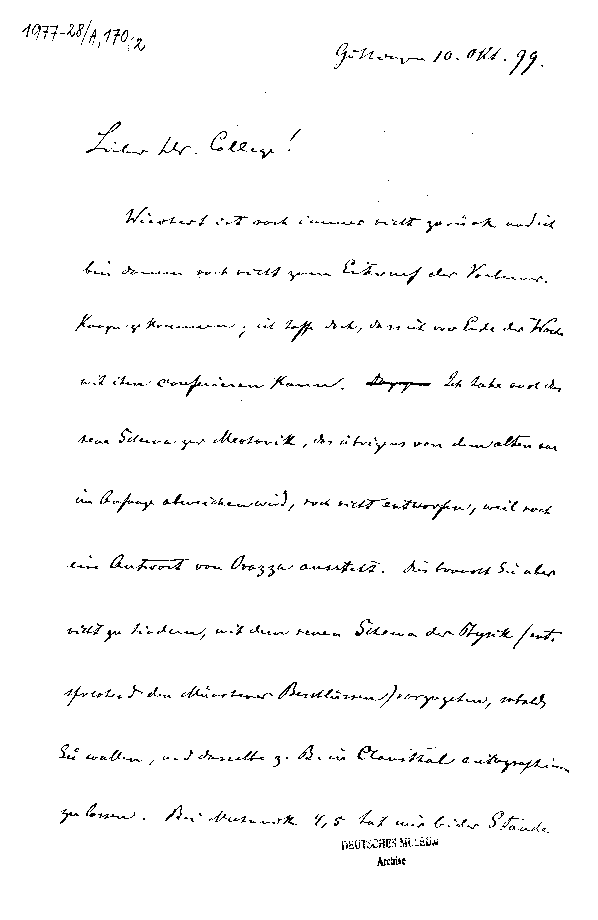 1977-28/A,170,2
Göttingen 10. Okt. 99.
Lieber Hr. College!
Wiechert ist noch immer nicht zurück und ich
bin darum noch nicht zum Entwurf der
gekommen; ich hoffe doch, dass ich vor Ende der Woche
mit ihm conferieren kann. Ich habe auch das
neue Schema zur Mechanik, das übrigens von dem alten nur
im Anfange abweichen wird, noch nicht entworfen, weil noch
eine Antwort von aussteht. Dies braucht Sie aber
nicht zu hindern, mit dem neuen Schema der Physik (ent-
sprechend den Münchener Beschlüssen) vorzugehen, sobald
Sie wollen, und dasselbe z. B. in Clausthal autographieren
zu lassen. Bei Mechanik 4, 5 hat mir bei der Stunde
DEUTSCHES MUSEUM
Archive